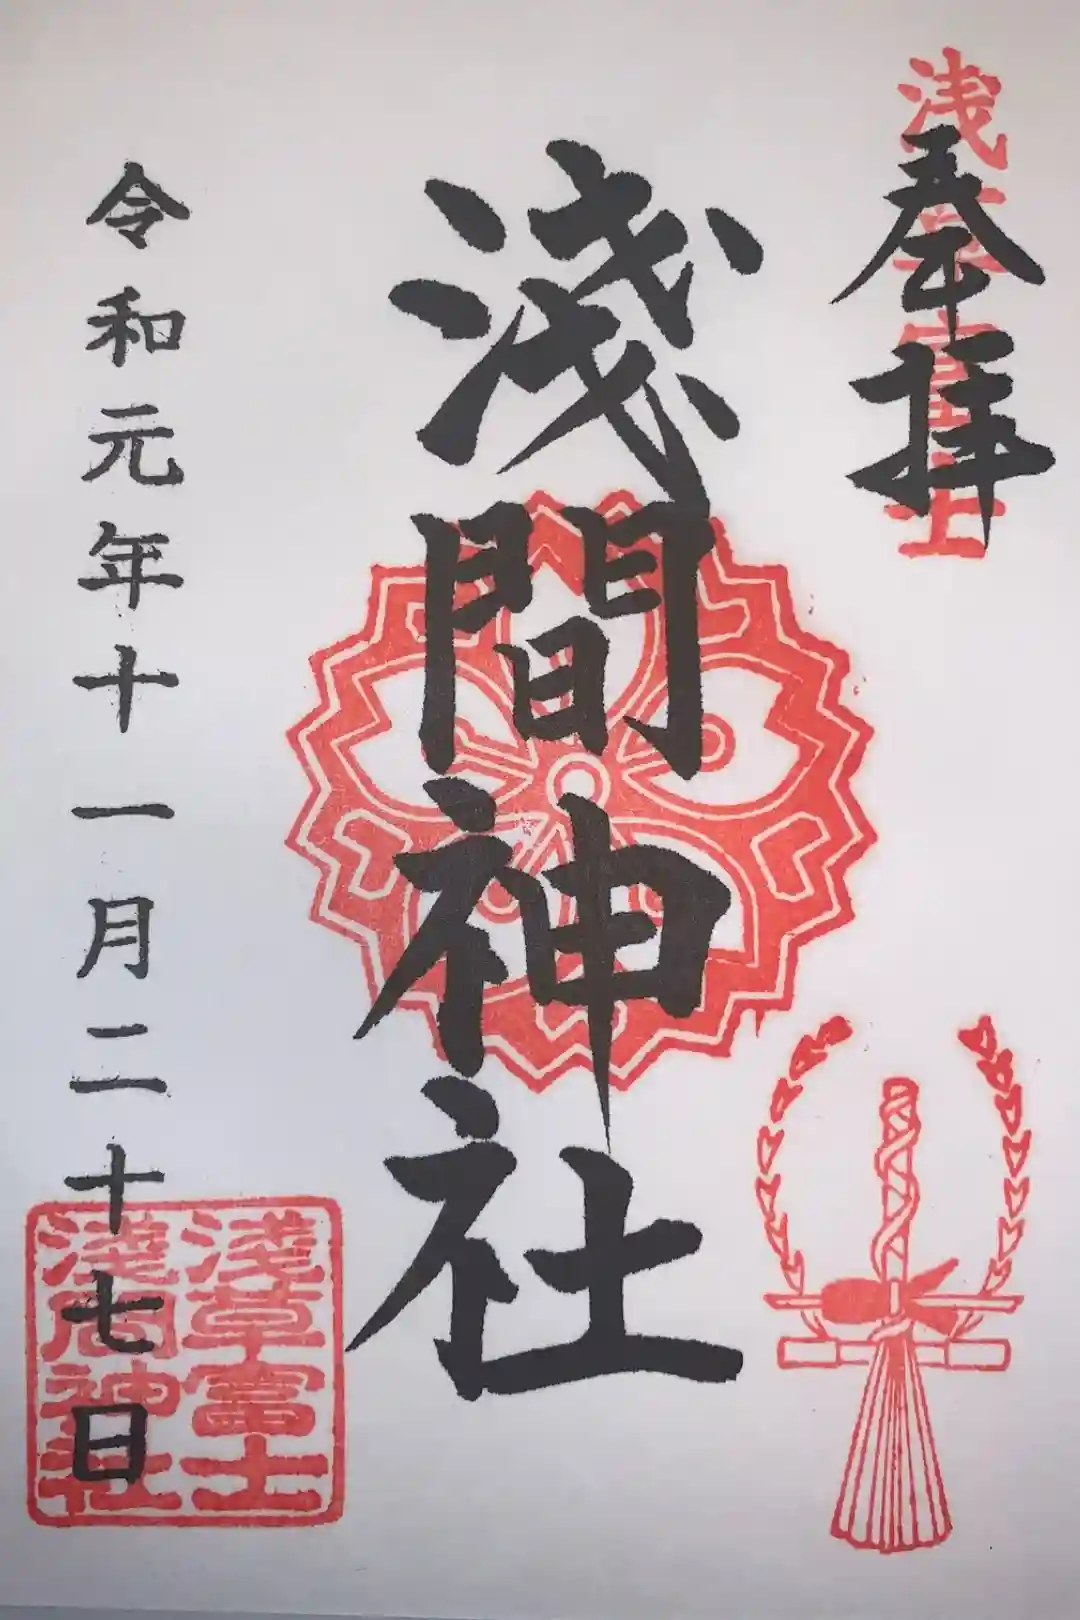 浅草富士
奉拝
淺間神社
令和元年十一月二十七日
淺草富士
淺間神社